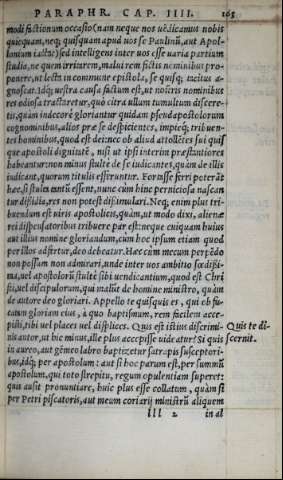 PARAPHR. CAP. IIII. 163
modi factionum occasio (nam neque nos vēdicamus nobis
quicquam, neq; quisquam apud vos se Paulinū, aut Apol-
lonium iactat) sed intelligens inter vos esse varia partium
studia, ne quem irritarem, malui rem fictis nominibus pro-
ponere, ut lecta in commune epistola, se quisq; tacitus a-
gnoscat. Idq; vestra causa factum est, ut nostris nominibus
res odiosa tractaretur, quò citra ullum tumultum discere-
tis, quàm indecorè gloriantur quidam pseudapostolorum
cognominibus, alios præ se despicientes, impieq; tribuen-
tes hominibus, quod est dei: nec ob aliud attollētes sui quis-
que apostoli dignitatē, nisi ut ipsi interim præstantiores
habeantur: non minus stultè de se iudicantes, quàm de illis
iudicant, quorum titulis efferuntur. Forsisse ferri poterāt
hæc, si stulta tantū essent, nunc cùm hinc perniciosa nascan
tur dissidia, res non potest dissimulari. Neq; enim plus tri-
buendum est viris apostolicis, quàm, ut modo dixi, alienæ
rei dispensatoribus tribuere par est: neque cuiquam huius
aut illius nomine gloriandum, cùm hoc ipsum etiam quod
per illos adfertur, deo debeatur. Hæc cùm mecum perpēdo
non possum non admirari, unde inter vos ambitio, dissi-
ma, vel apostolorū stultè sibi vendicantium, quod est Chri
sti, vel discipulorum, qui malūt de homine ministro, quàm
de autore deo gloriari. Appello te quisquis es, qui ob fu-
catum gloriam eius, à quo baptismum, rem facilem acce-
pisti, tibi vel places vel displices. Quis est istius discrimi-
nis autor, ut hic minus, ille plus accepisse videatur? Si quis
in aureo, aut gēmeo labro baptizetur satrapis susceptori-
bus, idq; per apostolum: aut si hoc parum est, per summū
apostolum, qui toto strepitu, regum opulentiam superet:
quis ausit pronuntiare, huic plus esse collatum, quàm si
per Petri piscatoris, aut meum coriarij ministrū aliquem
Quis te di-
scernit.
lll 2 in al